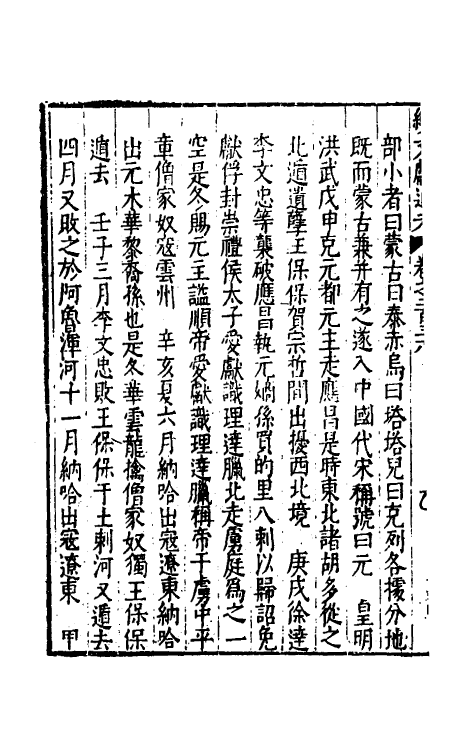 續文獻通考 卷之二百三六
部小者曰蒙古曰泰赤烏曰塔塔兒曰克列各據分地
既而蒙古兼并有之遂入中國代宋稱號曰元　皇明
洪武戊申克元都元主走應昌是時東北諸胡多從之
北遁遺孽王保保賀宗哲間出擾西北境　庚戌徐達
李文忠等襲破應昌執元嫡孫買的里八剌以歸詔免
獻俘封崇禮侯太子愛獻識理達臘北走虜庭爲之一
空是冬賜元主謚順帝愛獻識理達臘稱帝于虜中平
章僧家奴寇雲州　辛亥夏六月納哈出寇遼東納哈
出元木華黎裔孫也是冬華雲龍擒僧家奴獨王保保
遁去　壬子三月李文忠敗王保保于土剌河又遁去
四月又敗之於阿魯渾河十一月納哈出寇遼東　甲